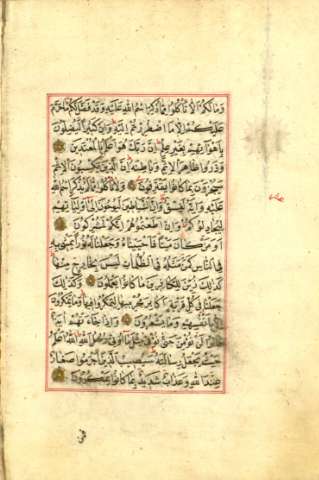 وَمَا لَكُمْ أَلَّا تَأْكُلُوا مِمَّا ذُكِرَ اسْمُ اللهِ عَلَيْهِ وَقَدْ فَصَّلَ لَكُمْ مَا حَرَّمَ
عَلَيْكُمْ إِلَّا مَا اضْطُرِرْتُمْ إِلَيْهِ وَإِنَّ كَثِيرًا لَيُضِلُّونَ
بِأَهْوَائِهِمْ بِغَيْرِ عِلْمٍ إِنَّ رَبَّكَ هُوَ أَعْلَمُ بِالْمُعْتَدِينَ
وَذَرُوا ظَاهِرَ الْإِثْمِ وَبَاطِنَهُ إِنَّ الَّذِينَ يَكْسِبُونَ الْإِثْمَ
سَيُجْزَوْنَ بِمَا كَانُوا يَقْتَرِفُونَ وَلَا تَأْكُلُوا مِمَّا لَمْ يُذْكَرِ اسْمُ اللهِ
عَلَيْهِ وَإِنَّهُ لَفِسْقٌ وَإِنَّ الشَّيَاطِينَ لَيُوحُونَ إِلَى أَوْلِيَائِهِمْ
لِيُجَادِلُوكُمْ وَإِنْ أَطَعْتُمُوهُمْ إِنَّكُمْ لَمُشْرِكُونَ
أَوَمَنْ كَانَ مَيْتًا فَأَحْيَيْنَاهُ وَجَعَلْنَا لَهُ نُورًا يَمْشِي بِهِ
فِي النَّاسِ كَمَنْ مَثَلُهُ فِي الظُّلُمَاتِ لَيْسَ بِخَارِجٍ مِنْهَا
كَذَلِكَ زُيِّنَ لِلْكَافِرِينَ مَا كَانُوا يَعْمَلُونَ وَكَذَلِكَ
جَعَلْنَا فِي كُلِّ قَرْيَةٍ أَكَابِرَ مُجْرِمِيهَا لِيَمْكُرُوا فِيهَا وَمَا يَمْكُرُونَ
إِلَّا بِأَنْفُسِهِمْ وَمَا يَشْعُرُونَ وَإِذَا جَاءَتْهُمْ آيَةٌ
قَالُوا لَنْ نُؤْمِنَ حَتَّى نُؤْتَى مِثْلَ مَا أُوتِيَ رُسُلُ اللهِ اللهُ أَعْلَمُ
حَيْثُ يَجْعَلُ رِسَالَتَهُ سَيُصِيبُ الَّذِينَ أَجْرَمُوا صَغَارٌ
عِنْدَ اللهِ وَعَذَابٌ شَدِيدٌ بِمَا كَانُوا يَمْكُرُونَ
فمن